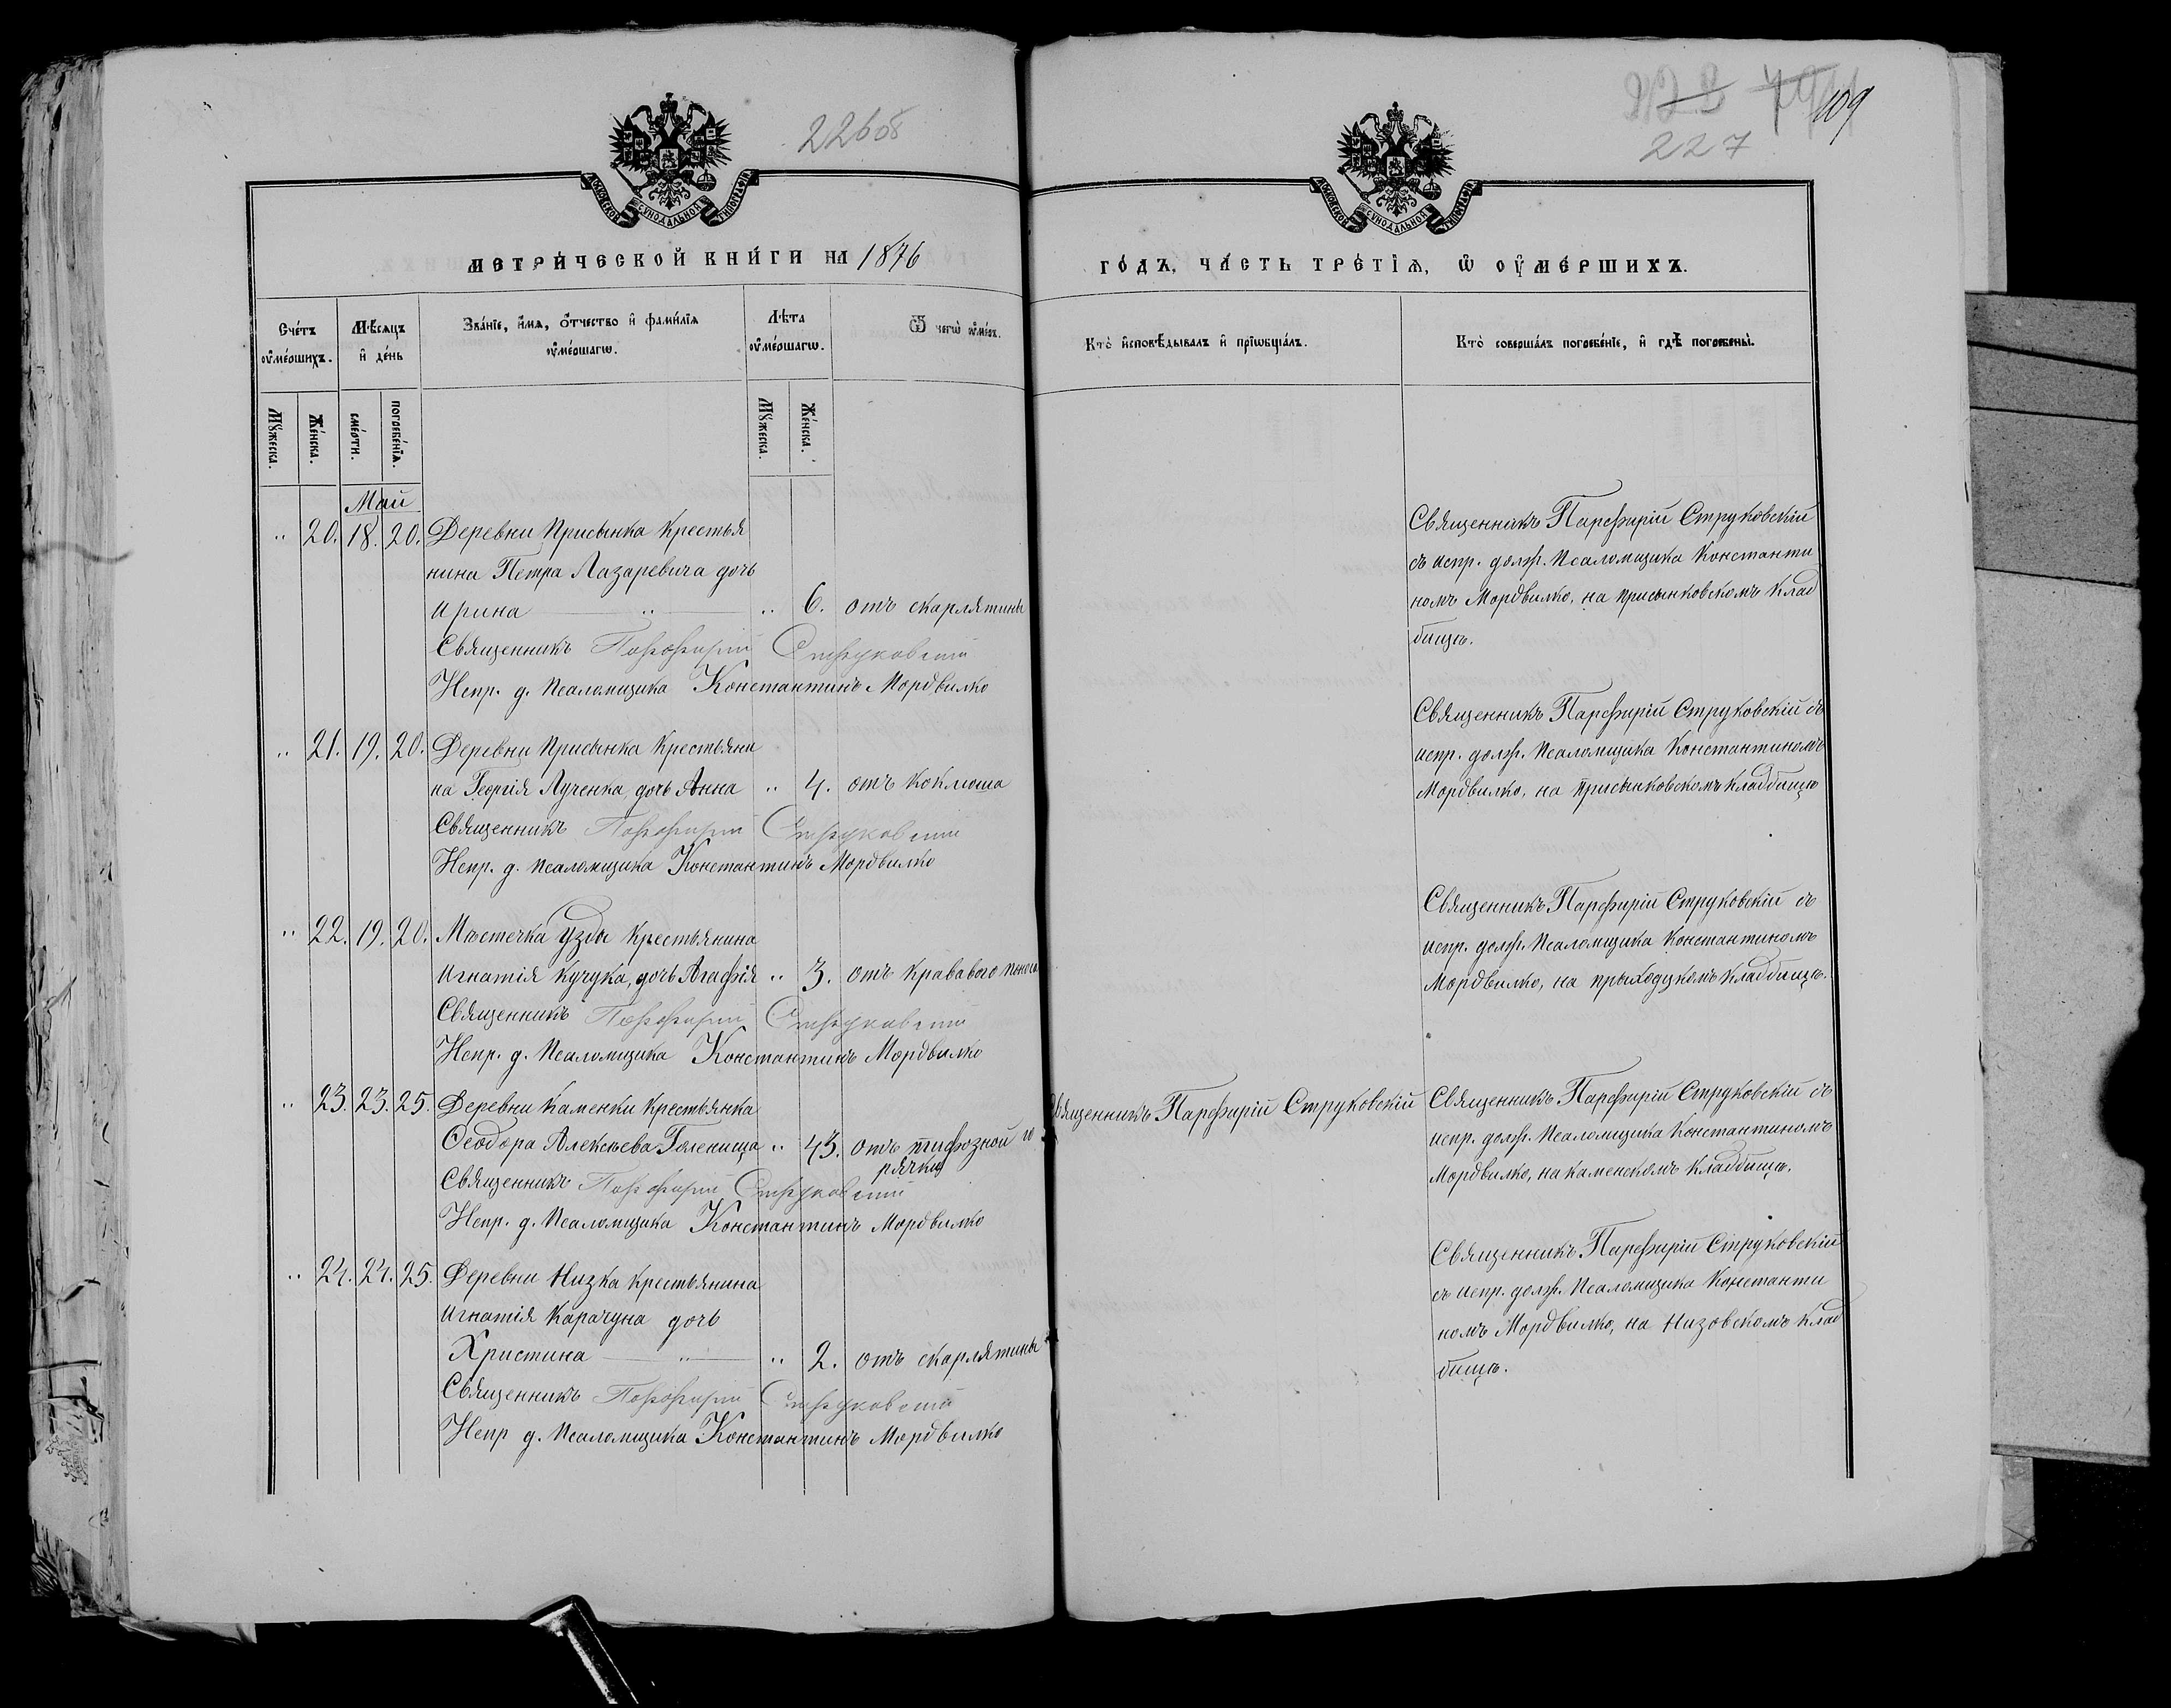 226об
227
109
МОСКОВСКОЙ СУНОДАЛЬНОЙ ТИПОГРАФІИ
МОСКОВСКОЙ СУНОДАЛЬНОЙ ТИПОГРАФІИ
МЕТРИ́ЧЕСКОЙ КНИ́ГИ НА 1876
ГО́ДЪ, ЧА́СТЬ ТРЕ́ТІѦ, Ѡ҆ ОУ҆МЕ́РШИХЪ.
Сче́тъ оу҆ме́ршихъ.
Мѣ́сѧцъ и҆ де́нь
Зва́нїе, и҆́мѧ, ѻ҆́тчество и҆ фами́лїѧ оу҆ме́ршагѡ.
Лѣ́та оу҆ме́ршагѡ.
Ѿ чегѡ̀ оу҆́меръ.
Кто̀ и҆сповѣ́дывалъ и҆ прїѡбща́лъ.
Кто̀ соверша́лъ погребе́нїе, и҆ гдѣ̀ погребены̀.
Мꙋ́жеска.
Же́нска.
сме́рти.
погребе́нїѧ.
Мꙋ́жеска.
Же́нска.
Май
" 20. 18. 20. Деревни Присынка Крестья
нина Петра Лазаревича дочь
Ирина — " — " 6. отъ скарлятины
Священникъ Порфирій Струковскій
Испр. д. Псаломщика Константинъ Мордвилко
Священникъ Парфирій Струковскій
съ испр. долж. Псаломщика Константи
номъ Мордвилко, на присынковскомъ Клад
бищѣ.
" 21. 19. 20. Деревни Присынка Крестьяни
на Георгія Лученка, дочь Анна " 4. отъ Коклюша
Священникъ Порфирій Струковскій
Испр. д. Псаломщика Константинъ Мордвилко
Священникъ Парфирій Струковскій съ
испр. долж. Псаломщика Константиномъ
Мордвилко, на присынковскомъ Кладбищѣ
" 22. 19. 20. Мѣстечка Узды Крестьянина
Игнатія Кучука, дочь Агафія " 3. отъ Кравового
Священникъ Порфирій Струковскій
Испр. д. Псаломщика Константинъ Мордвилко
Священникъ Парфирій Струковскій съ
испр. долж. Псаломщика Константиномъ
Мордвилко, на Кладбищѣ.
" 23. 23. 25. Деревни Каменки Крестьянка
Ѳеодора Алексѣева Голенища " 43. отъ тифозной го
рячки
Священникъ Порфирій Струковскій
Испр. д. Псаломщика Константинъ Мордвилко
Священникъ Парфирій Струковскій
Священникъ Парфирій Струковскій съ
испр. долж. Псаломщика Константиномъ
Мордвилко, на каменскомъ Кладбищѣ.
" 24. 24. 25. Деревни Низка Крестьянина
Игнатія Карачуна дочь
Христина — " — " 2. отъ скарлятины
Священникъ Порфирій Струковскій
Испр д. Псаломщика Константинъ Мордвилко
Священникъ Парфирій Струковскій
съ испр. долж. Псаломщика Константи
номъ Мордвилко, на Низовскомъ Клад
бищѣ.